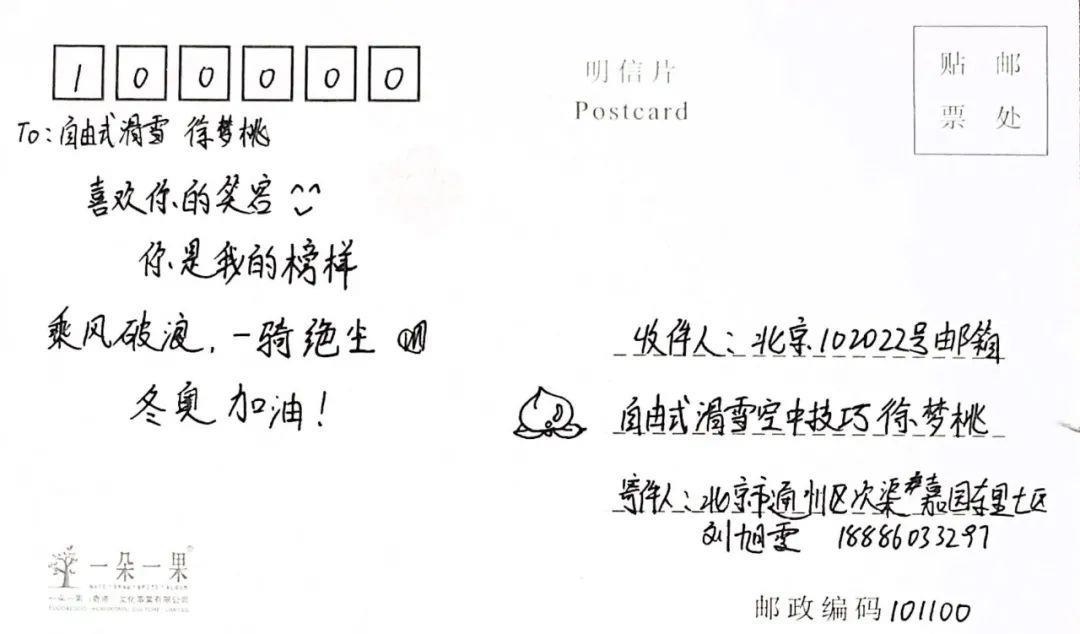 100000
明信片
Postcard
贴邮
票处
To:自由式滑雪 徐梦桃
喜欢你的笑容
你是我的榜样
乘风破浪,一骑绝尘
冬奥 加油!
收件人:北京102022号邮箱
自由式滑雪空中技巧徐梦桃
寄件人:北京市通州区次渠嘉园东里七区
刘旭雯 18886033297
邮政编码101100
一朵一果